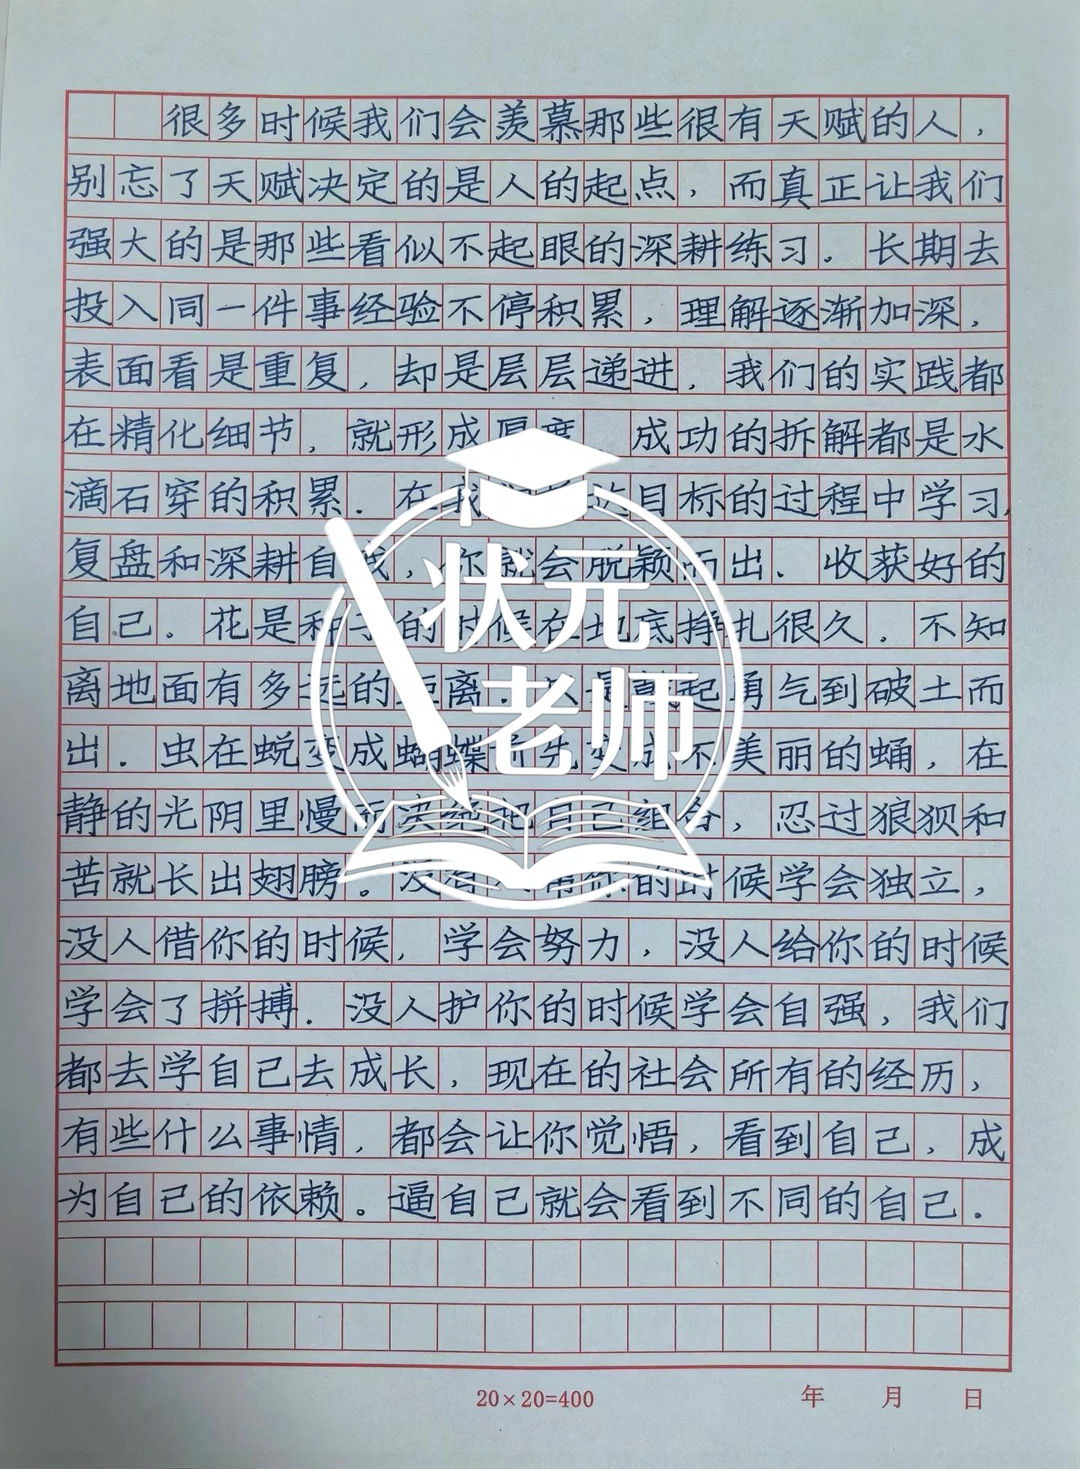 很多时候我们会羡慕那些很有天赋的人，
别忘了天赋决定的是人的起点，而真正让我们
强大的是那些看似不起眼的深耕练习。长期去
投入同一件事经验不停积累，理解逐渐加深，
表面看是重复，却是层层递进，我们的实践都
在精化细节，就形成厚度 成功的拆解都是水
滴石穿的积累．在我 目标的过程中学习，
复盘和深耕自我，你就会脱颖而出．收获好的
自己。花是种子的时候在地底挣扎很久．不知
离地面有多远的距离． 是 起勇气到破土而
出．虫在蜕变成蝴蝶前先变成不美丽的蛹，在
静的光阴里慢而决绝把自己组合，忍过狼狈和
苦就长出翅膀。没有人帮你的时候学会独立，
没人借你的时候，学会努力，没人给你的时候
学会了拼搏．没人护你的时候学会自强，我们
都去学自己去成长，现在的社会所有的经历，
有些什么事情，都会让你觉悟，看到自己，成
为自己的依赖。逼自己就会看到不同的自己．
状元
老师
20×20=400 年 月 日